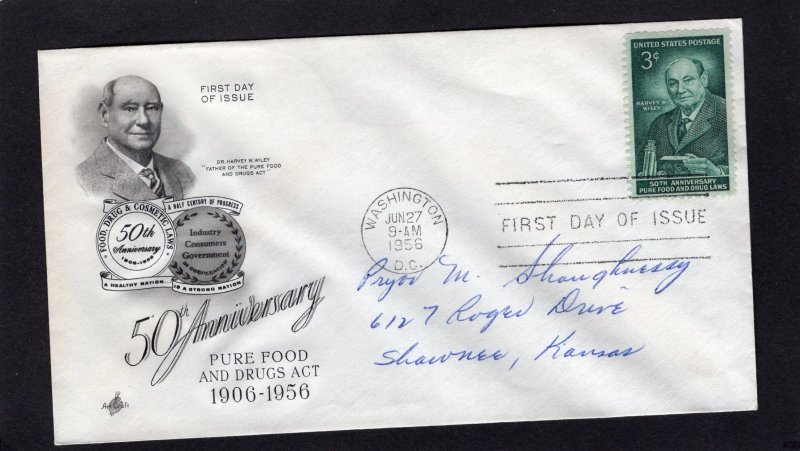 FIRST DAY
OF ISSUE
DR. HARVEY W. WILEY
"FATHER OF THE PURE FOOD
AND DRUGS ACT"
A HALF CENTURY OF PROGRESS
FOOD, DRUG & COSMETIC LAWS
50th
Anniversary
1906-1956
Industry
Consumers
Government
IN COOPERATION
A HEALTHY NATION...
IS A STRONG NATION
50th Anniversary
PURE FOOD
AND DRUGS ACT
1906-1956
Art Craft
UNITED STATES POSTAGE
3¢
HARVEY W.
WILEY
50TH ANNIVERSARY
PURE FOOD AND DRUG LAWS
WASHINGTON
JUN 27
9-AM
1956
D.C.
FIRST DAY OF ISSUE
Pryor M. Shaughnessy
6127 Roger Drive
Shawnee, Kansas